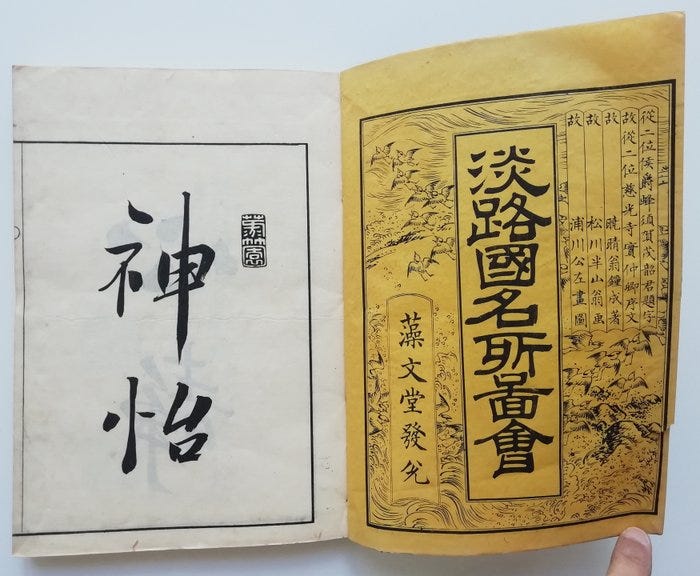 從二位侯爵蜂須賀茂韶君題字
故從二位光寺實仲卿序文
故 曉晴翁鐘成著
故 松川半山翁画
故 浦川公左畫圖
淡路國名所圖會
藻文堂發兌
神怡